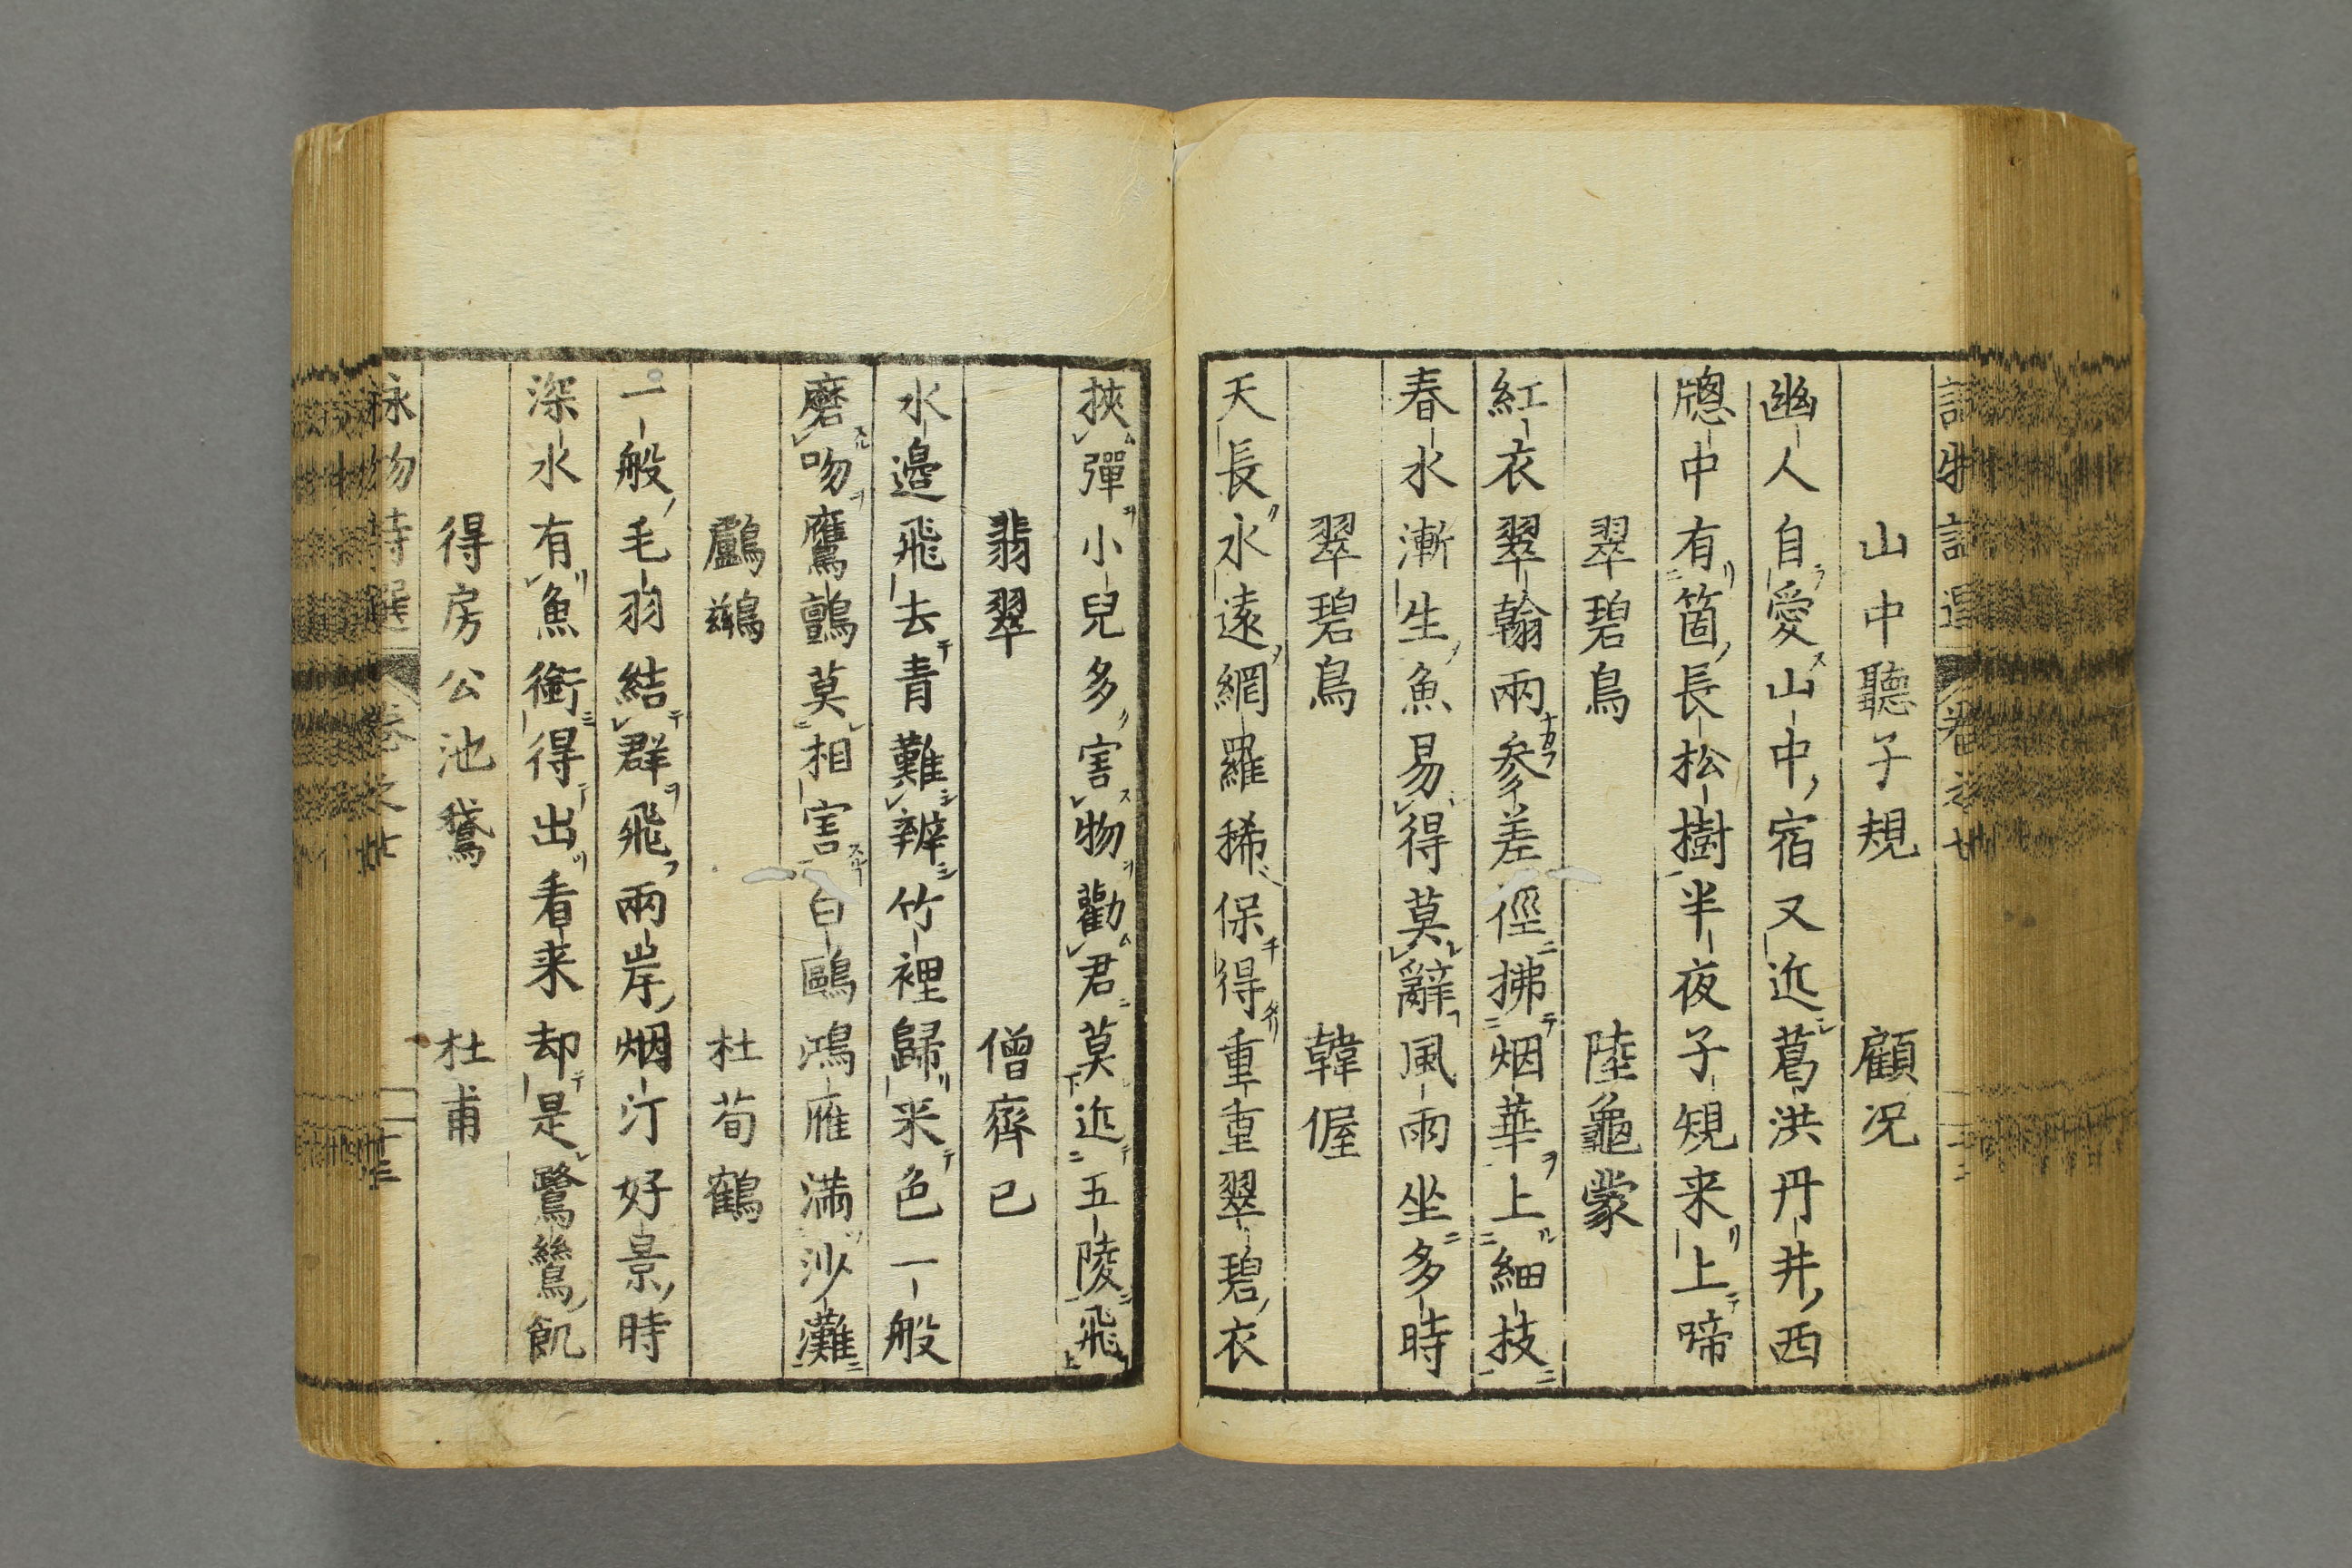 山中聽子規 顧况
幽人自愛山中宿又近葛洪丹井西
牕中有箇長松樹半夜子規来上啼
翠碧鳥 陸龜蒙
紅衣翠翰兩參差徑拂烟華上細技
春水漸生魚易得莫辭風雨坐多時
翠碧鳥 韓偓
天長水遠網羅稀保得重重翠碧衣
挾彈小兒多害物勸君莫近五陵飛
翡翠 僧齊已
水邉飛去青難辨竹裡歸来色一般
磨吻鷹鸇莫相害白鷗鴻雁滿沙灘
鸕鷀 杜荀鶴
一般毛羽結群飛兩岸烟汀好景時
深水有魚銜得出看来却是鷺鷥飢
得房公池鵞 杜甫
詠物詩選